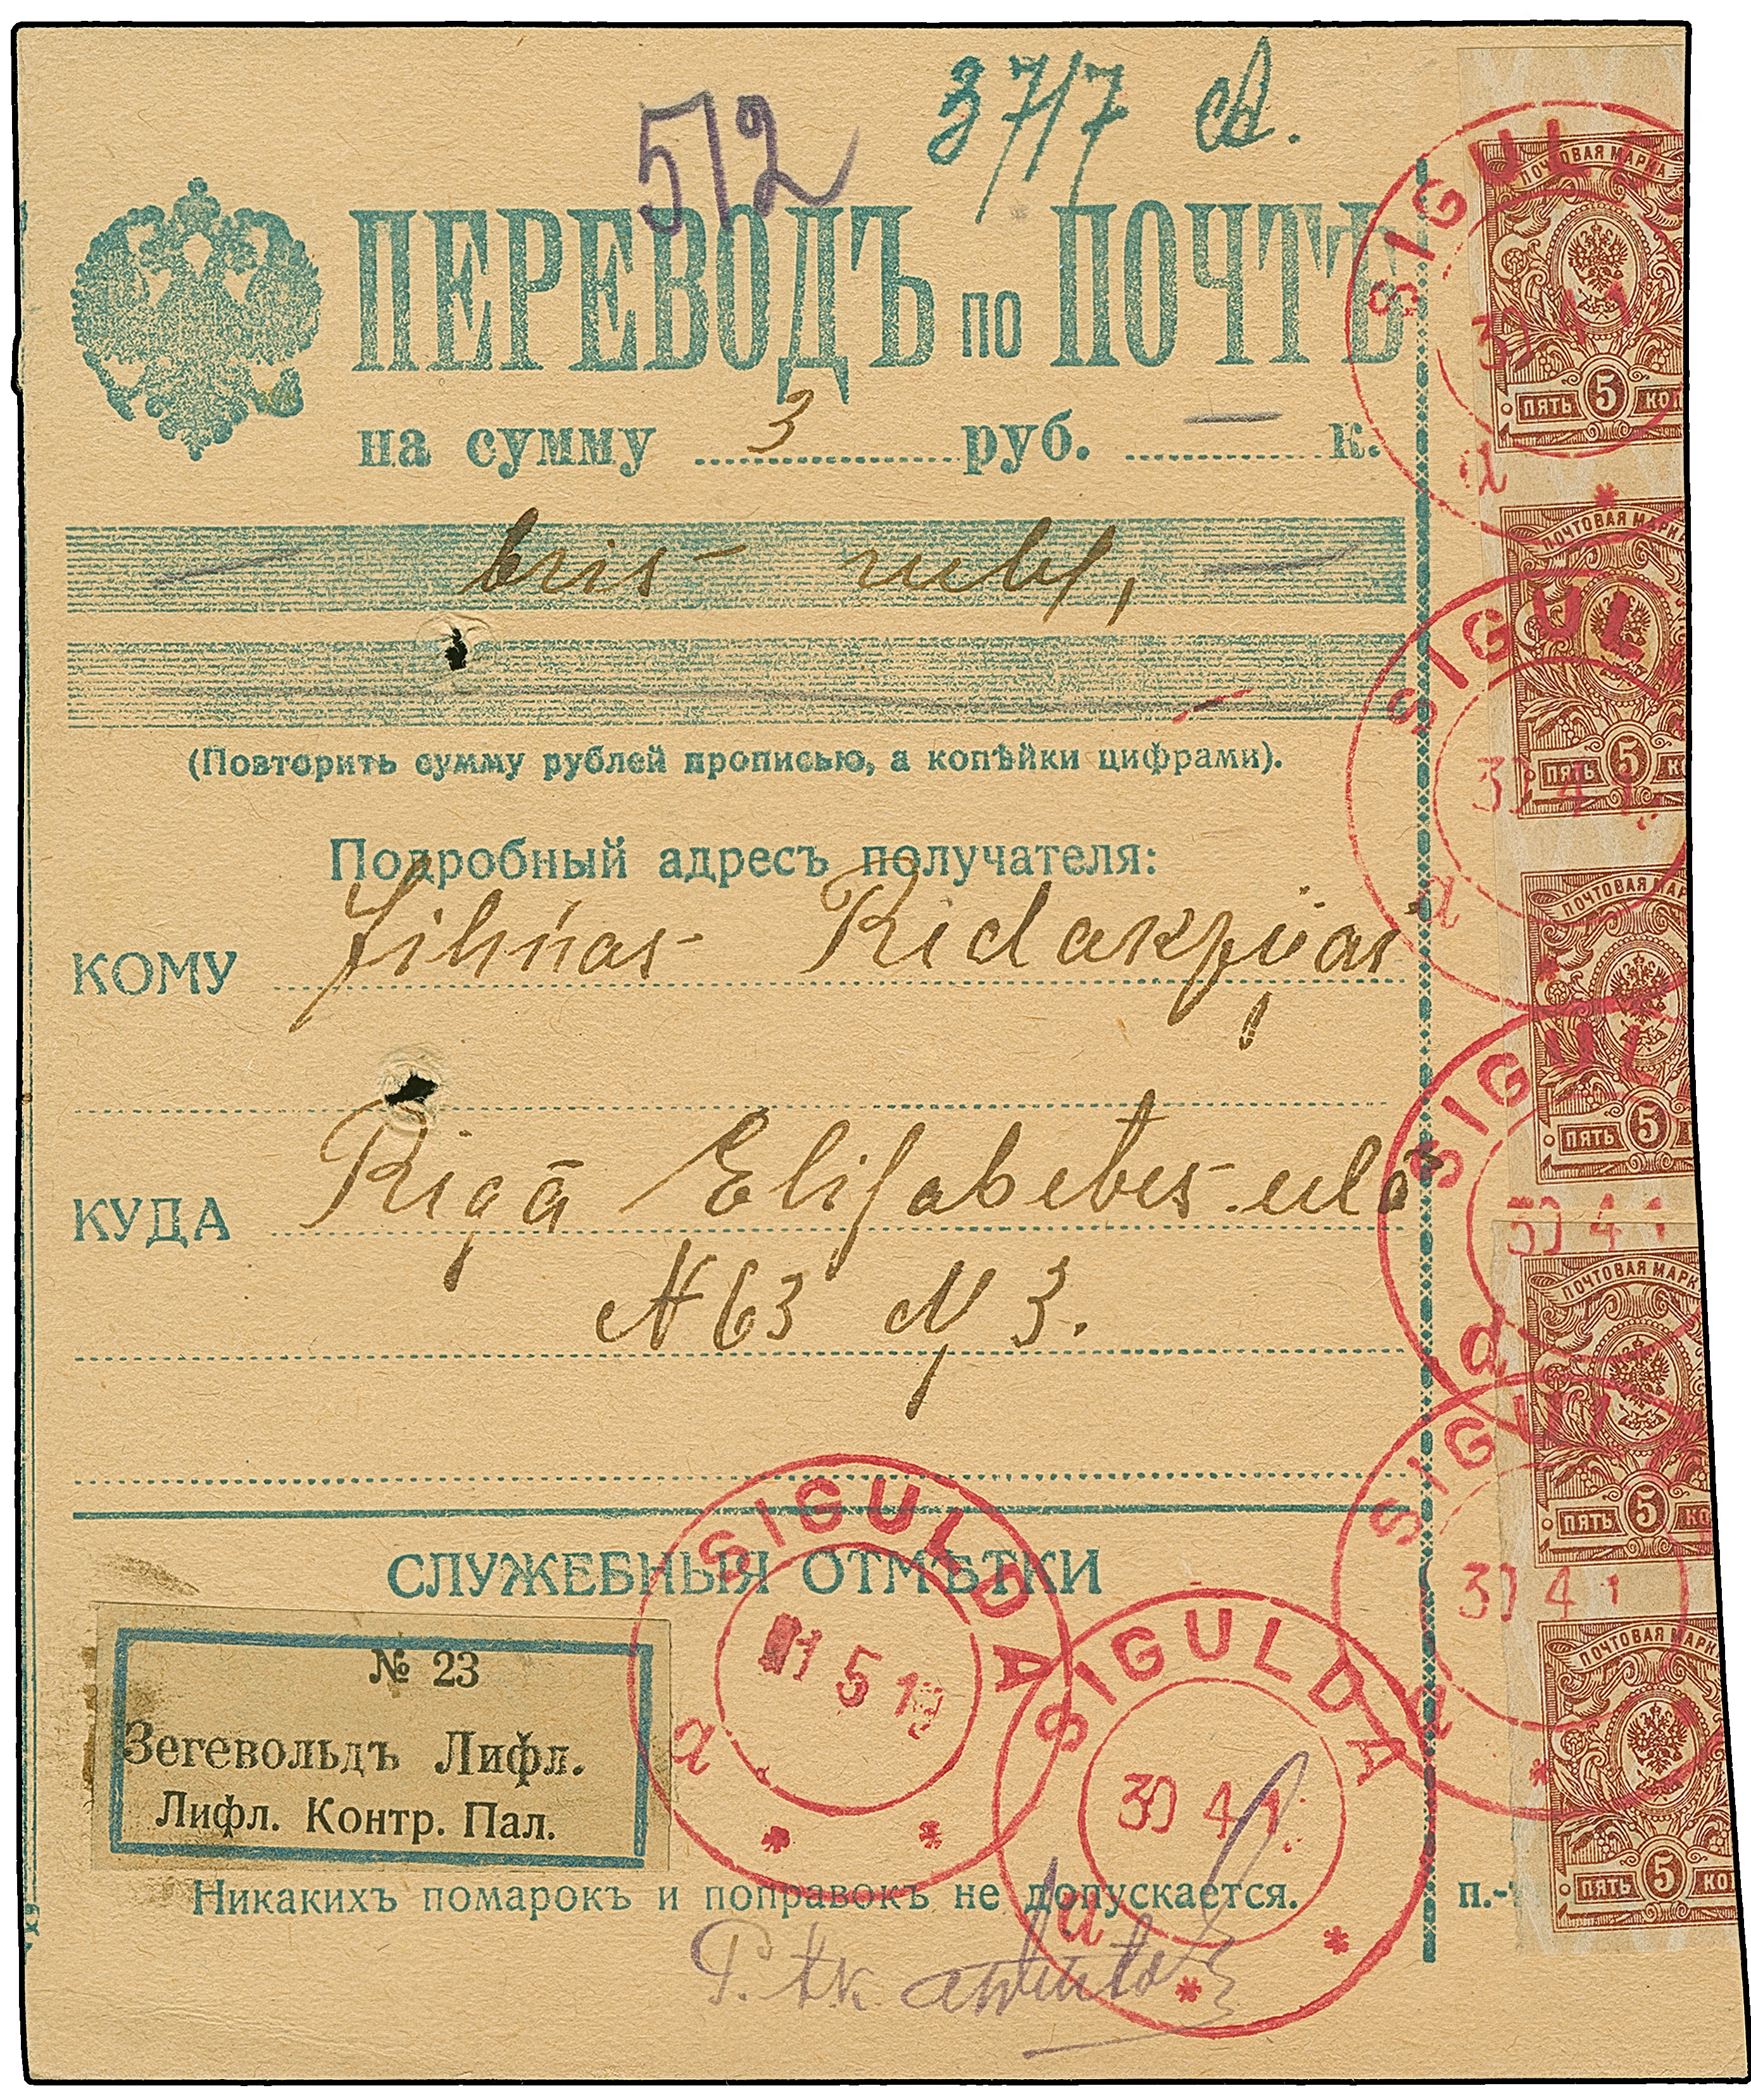 512 37/7
ПЕРЕВОДЪ по ПОЧТѢ
на сумму 3 руб. — к.
— tris rubļ, —
(Повторить сумму рублей прописью, а копѣйки цифрами).
Подробный адресъ получателя:
КОМУ Zihņas Redakzijai
КУДА Rigā Elisabetes ielā
N 63 3.
СЛУЖЕБНЫЯ ОТМѢТКИ
№ 23
Зегевольдъ Лифл.
Лифл. Контр. Пал.
Никакихъ помарокъ и поправокъ не допускается.
п.-т
SIGULDA
1 5 19
a
SIGULDA
30 4 1
a
SIGUL
30 4 1
a
SIGUL
30 4 1
a
SIGUL
30 4 1
a
SIGUL
30 4 1
a
ПОЧТОВАЯ МАРКА
ПЯТЬ 5 КОП
ПОЧТОВАЯ МАРК
ПЯТЬ 5 КО
ПОЧТОВАЯ МАР
ПЯТЬ 5
ПОЧТОВАЯ МАРК
ПЯТЬ 5 КО
ПОЧТОВАЯ МАРК
ПЯТЬ 5 КО